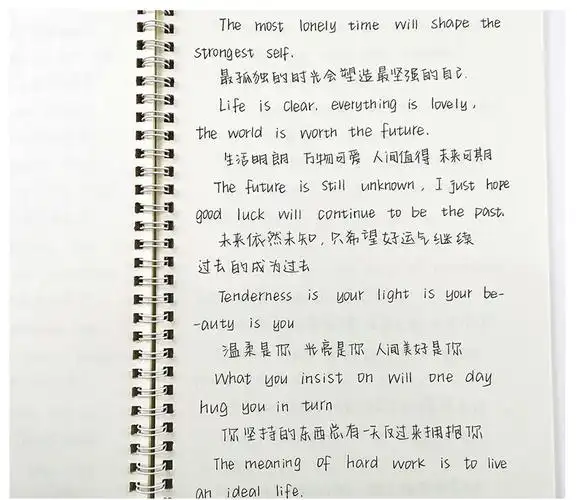 The most lonely time will shape the
strongest self.
最孤独的时光会塑造最坚强的自己.
Life is clear. everything is lovely,
the world is worth the future.
生活明朗 万物可爱 人间值得 未来可期
The future is still unknown, I just hope
good luck will continue to be the past.
未来依然未知,只希望好运气继续
过去的成为过去
Tenderness is your light is your be-
-auty is you
温柔是你 光亮是你 人间美好是你
What you insist on will one day
hug you in turn
你坚持的东西总有一天反过来拥抱你
The meaning of hard work is to live
an ideal life.